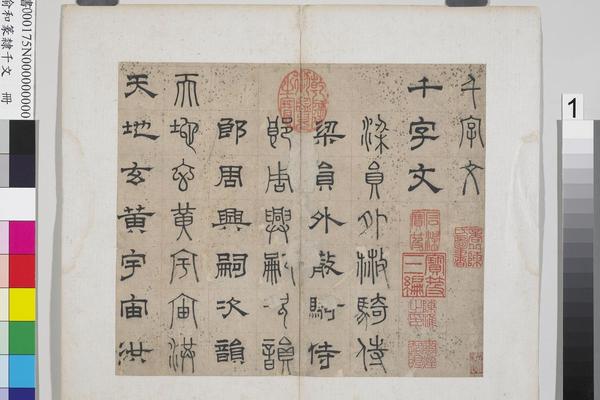 千字文
千字文
梁員外散騎侍
梁員外散騎侍
郎周興嗣次韻
郎周興嗣次韻
天地玄黃宇宙洪
天地玄黃宇宙洪
寶笈三編
書000175N000000000
俞和篆隸千文 冊
1